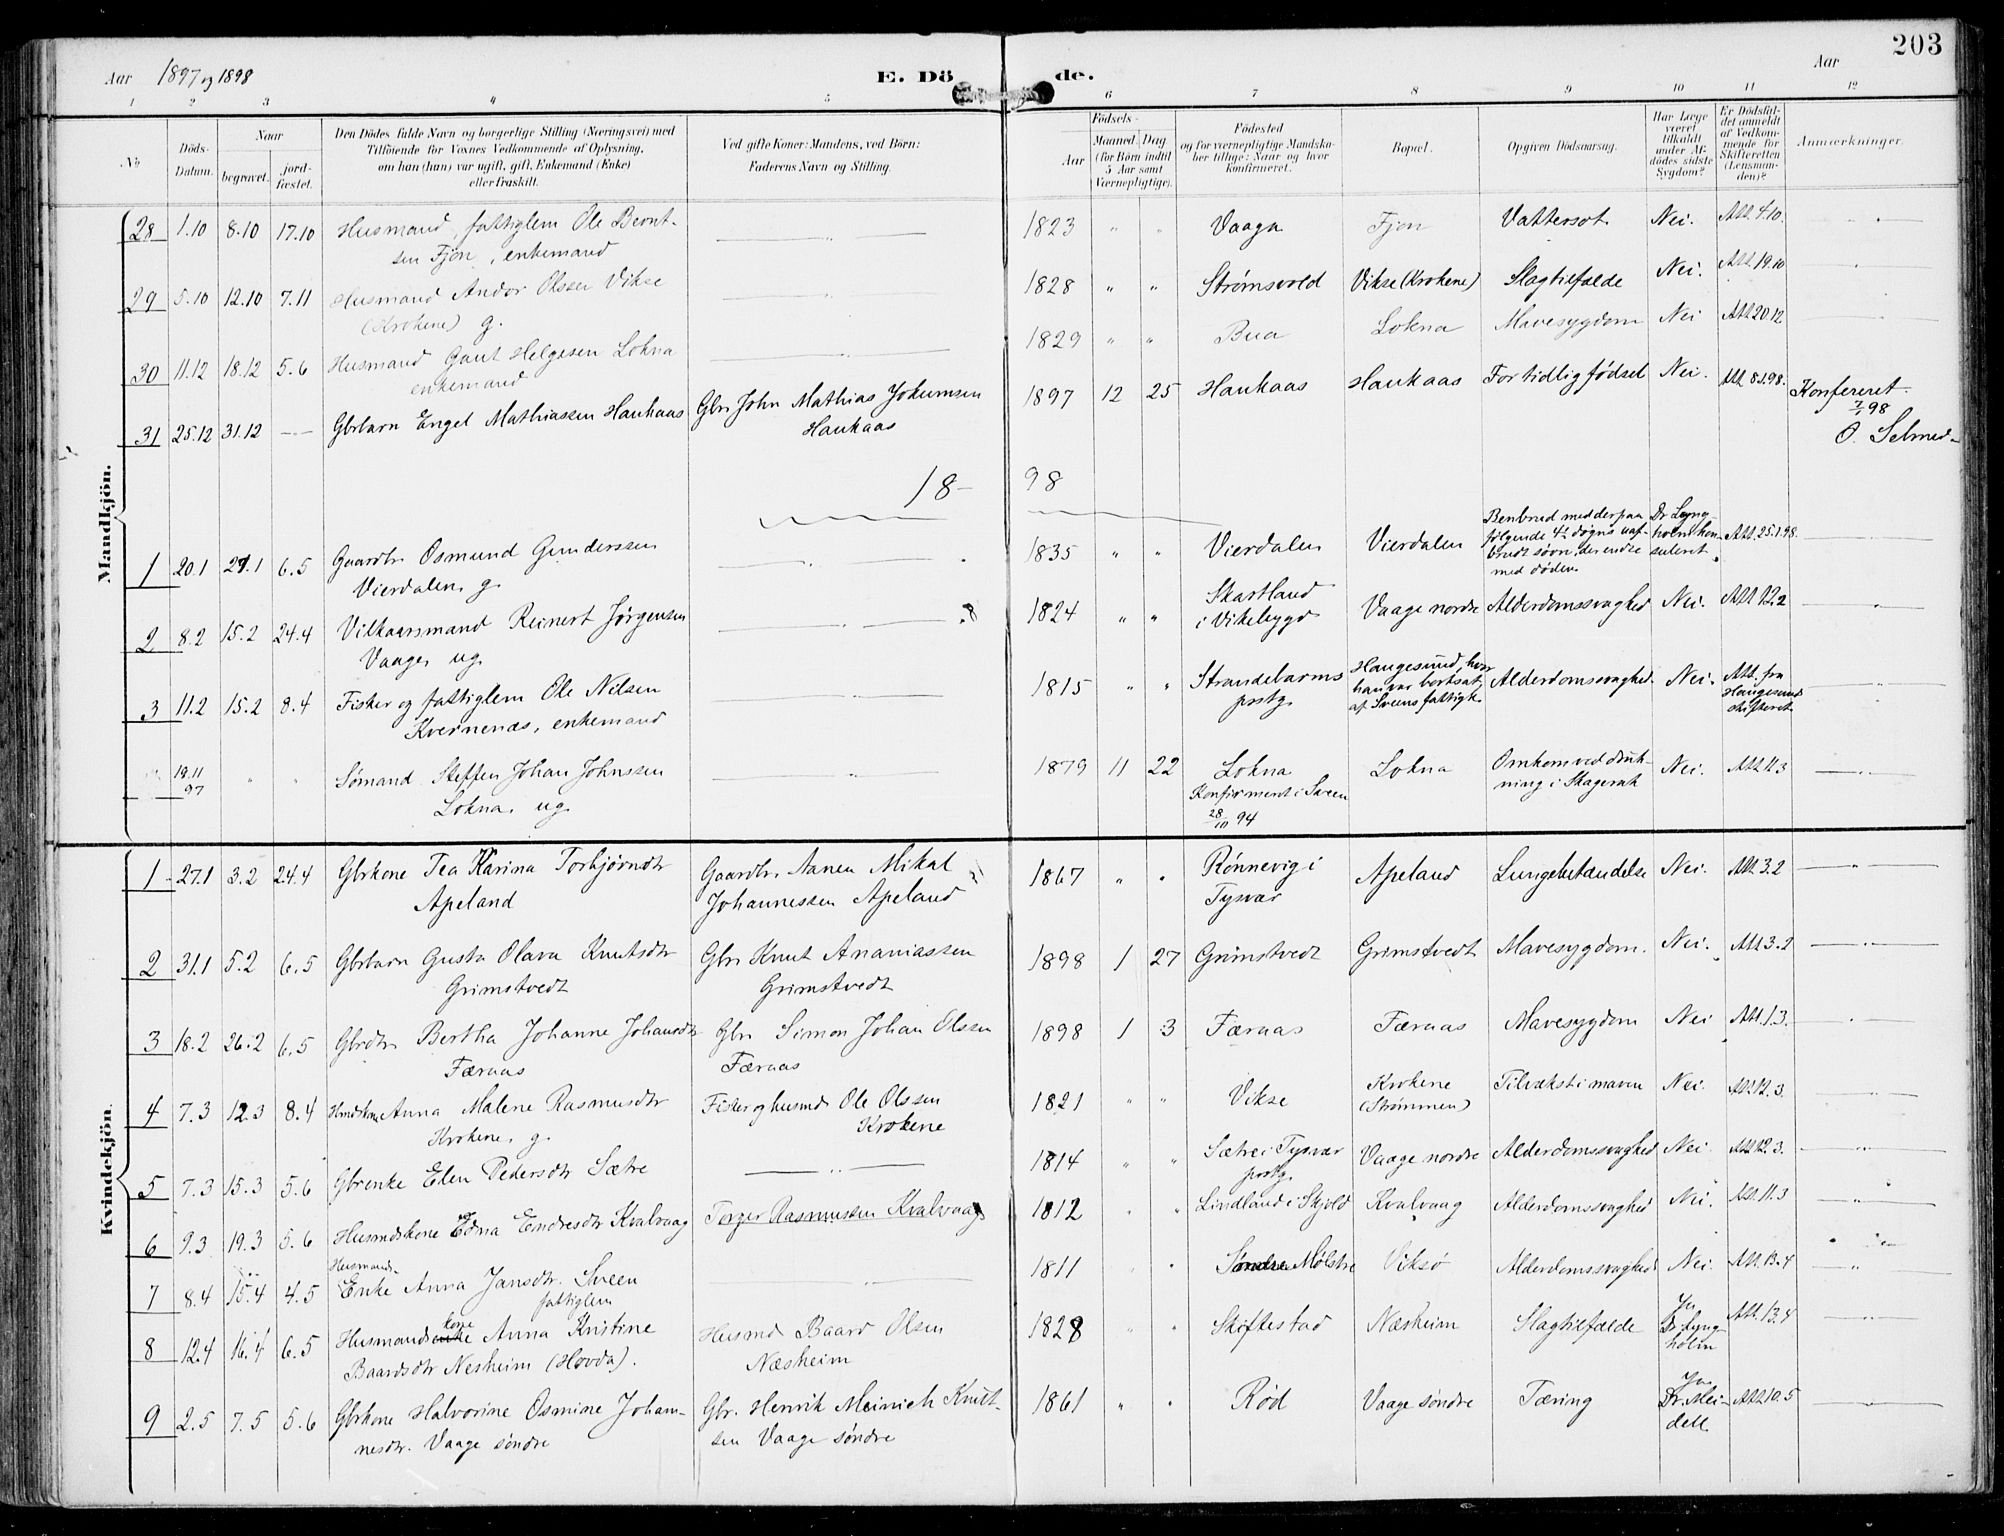 203
Aar 1897 og 1898
E. Dö de.
Aar
1 2 3 4 5 6 7 8 9 10 11 12
No
Döds-Datum.
Naar
begravet.
jord-fæstet.
Den Dödes fulde Navn og borgerlige Stilling (Næringsvei) med
Tilföiende for Voxnes Vedkommende af Oplysning,
om han (hun) var ugift, gift, Enkemand (Enke)
eller fraskilt.
Ved gifte Koner: Mandens, ved Börn:
Faderens Navn og Stilling.
Födsels-
Aar
Maaned Dag
(for Börn indtil
5 Aar samt
Værnepligtige).
Födested
og for værnepligtige Mandska-
ber tillige: Naar og hvor
konfirmeret.
Bopæl.
Opgiven Dödsaarsag.
Har Læge
været
tilkaldt
under Af-
dödes sidste
Sygdom?
Er Dödsfal-
det anmeldt
af Vedkom-
mende for
Skifteretten
(Lensman-
den)?
Anmærkninger.
Mandkjön.
28 1.10 8.10 17.10 Husmand, fattiglem Ole Bernt- 1823 " " Vaaga Fjon Vattersot Nei. Att. 4.10.
sen Fjon, enkemand
29 5.10 12.10 7.11 Husmand Andor Olsen Vikse 1828 " " Strømsvold Vikse (Krokene) Slagtilfælde Nei. Att. 19.10
(Krokene) g.
30 11.12 18.12 5.6 Husmand Gaut Helgesen Lokna 1829 " " Bua Lokna Mavesygdom Nei Att. 20.12
enkemand
31 25.12 31.12 — Gbrbarn Engel Mathiassen Haukaas Gbr. John Mathias Jokumsen 1897 12 25 Haukaas Haukaas For tidlig fødsel Nei. Att. 8.1.98. Konfereret
Haukaas 7/1 98
O. Selmer
18— 98
1 20.1 29.1 6.5 Gaardbr. Osmund Gunderssen 1835 " " Vierdalen Vierdalen Benbrud med derpaa Dr. Lyng- Att. 25.1.98.
følgende 4 døgns uaf- holm kon-
brudt søvn, der endte suleret.
med døden.
Vierdalen, g.
2 8.2 15.2 24.4 Vilkaarsmand Reinert Jørgensen 1824 " " Skartland Vaage nordre Alderdomssvaghed Nei. Att. 12.2
Vaage, ug. i Vikebygd
3 11.2 15.2 8.4 Fisker og fattiglem Ole Nilsen 1815 " " Strandebarms Haugesund, hvor Alderdomssvaghed. Nei. Att. fra
Kvernenæs, enkemand prstg. han var bortsat Haugesund
af Sveens fattigk. skifteret.
19.11 97 " " Sømand Steffen Johan Johnssen 1879 11 22 Lokna Lokna Omkom ved druk- Nei. Att. 11.3
Lokna, ug. Konfirmeret i Sveen ning i Skagerak
28/10 94
Kvindekjön.
1 27.1 3.2 24.4 Gbrkone Tea Karina Torbjørndtr. Gaardbr. Aanen Mikal 1867 " " Rønnevig i Apeland Lungebetændelse Nei. Att. 3.2
Apeland Johannessen Apeland Tysvær
2 31.1 5.2 6.5 Gbrbarn Gusta Olava Knutsdtr. Gbr. Knut Ananiassen 1898 1 27 Grimstvedt Grimstvedt Mavesygdom. Nei. Att. 3.2
Grimstvedt Grimstvedt
3 18.2 26.2 6.5 Gbrdtr. Bertha Johanne Johansdtr. Gbr. Simon Johan Olsen 1898 1 3 Færaas Færaas Mavesygdom Nei Att. 1.3.
Færaas Færaas
4 7.3 12.3 8.4 Hmdskone Anna Malene Rasmusdtr. Fisker og husmd. Ole Olssen 1821 " " Vikse Krokene Tilvækst i maven Nei. Att. 12.3.
Krokene, g. Krokene (Strømmen)
5 7.3 15.3 5.6 Gbrenke Elen Pedersdtr. Sætre 1814 " " Sætre i Tysvær Vaage nordre Alderdomssvaghed Nei. Att. 12.3.
prstg.
6 9.3 19.3 5.6 Husmdskone Edna Endresdtr. Kvalvaag Torger Rasmussen Kvalvaag 1812 " " Lindland i Skjold Kvalvaag Alderdomssvaghed Nei. Att. 11.3
7 8.4 15.4 4.5 Husmands- Enke Anna Jansdtr. Sveen 1811 " " Mølstre Viksø Alderdomssvaghed. Nei. Att. 13.4
fattiglem
8 12.4 16.4 6.5 Husmandskone Anna Kristine Husmd. Baard Olsen 1828 " " Skiftestad Næsheim Slagtilfælde Ja Dr. Lyng-holm Att. 13.4
Baardsdtr. Nesheim (Hovda). Næsheim
9 2.5 7.5 5.6 Gbrkone Halvorine Osmine Johan- Gbr. Henrik Meinich Knut- 1861 " " Rød Vaage søndre Tæring Ja Dr. Mei-dell Att. 10.5
nesdtr. Vaage søndre sen Vaage søndre